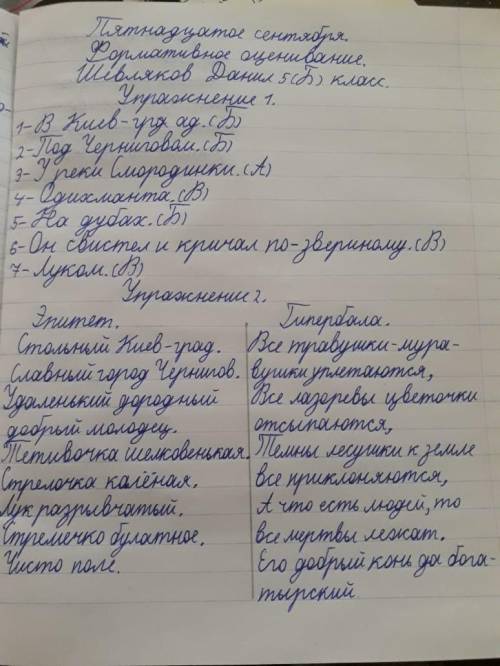 Пятнадцатое сентября.
Формативное оценивание.
Шевляков Данил 5(Б) класс.
Упражнение 1.
1-В Киев-град ад.(Б)
2-Под Черниговом.(Б)
3-У реки Смородинки.(А)
4-Одихманта.(В)
5-На дубах.(Б)
6-Он свистел и кричал по-звериному.(В)
7-Луком.(В)
Упражнение 2.
Эпитет.
Стольный Киев-град.
Славный город Чернигов.
Удаленький дородный
добрый молодец.
Тетивочка шелковенькая.
Стрелочка калёная.
Лук разрывчатый.
Стремечко булатное.
Чисто поле.
Гипербала.
Все травушки-мура-
вушки уплетаются,
Все лазоревы цветочки
отсыпаются,
Темны лесушки к земле
все приклоняются,
А что есть людей, то
все мертвы лежат.
Его добрый конь да бога-
тырский